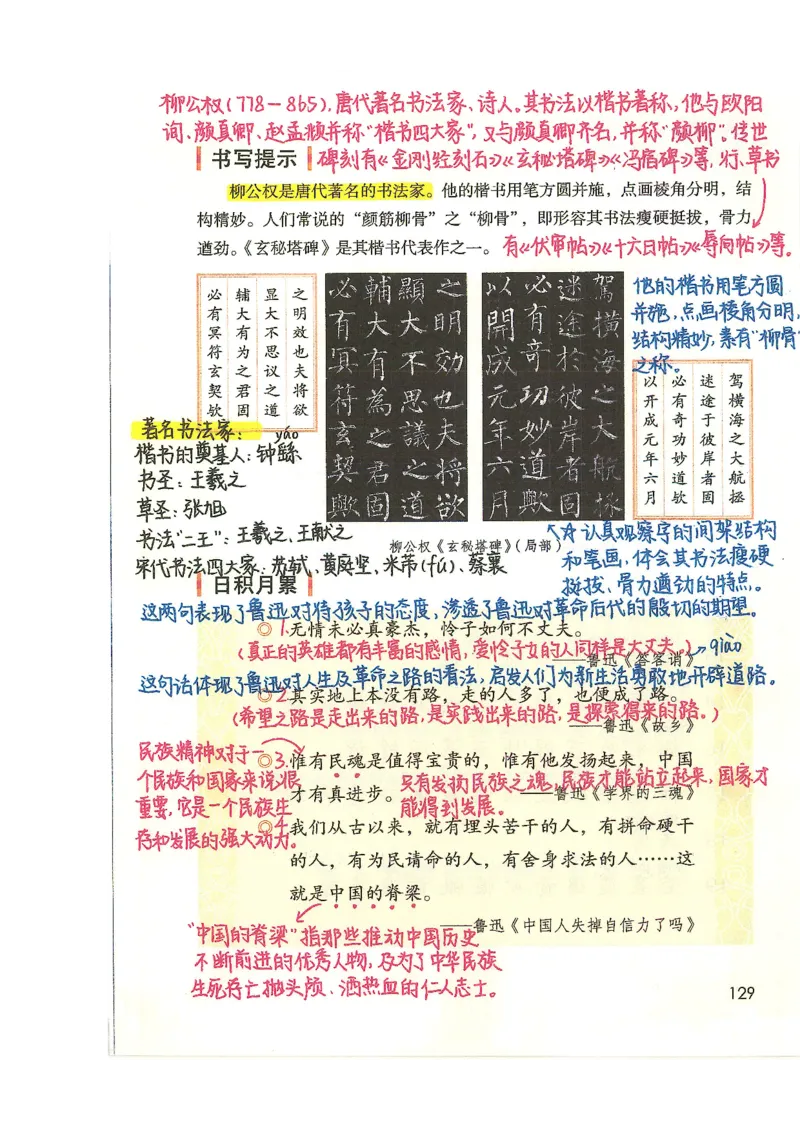 柳公权(778-865),唐代著名书法家、诗人。其书法以楷书著称,他与欧阳
询、颜真卿、赵孟頫并称"楷书四大家",又与颜真卿齐名,并称"颜柳"。传世
书写提示
碑刻有《金刚经刻石》《玄秘塔碑》《冯宿碑》等,行、草书
柳公权是唐代著名的书法家。他的楷书用笔方圆并施,点画棱角分明,结
构精妙。人们常说的“颜筋柳骨”之“柳骨”,即形容其书法瘦硬挺拔,骨力
遒劲。《玄秘塔碑》是其楷书代表作之一。
有《伏审帖》《十六日帖》《辱向帖》等。
之明效也夫将欲
显大不思议之道
辅大有为之君固
必有冥符玄契欤
之明効也夫将欲
顯大不思議之道
輔大有為之君固
必有冥符玄契歟
駕橫海之大航拯
迷途於彼岸者固
必有奇功妙道歟
以開成元年六月
他的楷书用笔方圆
并施,点画棱角分明,
结构精妙,素有"柳骨"
之称。
驾横海之大航拯
迷途于彼岸者固
必有奇功妙道欤
以开成元年六月
著名书法家:
yáo
楷书的奠基人:钟繇
书圣:王羲之
草圣:张旭
书法"二王":王羲之、王献之
宋代书法四大家:苏轼、黄庭坚、米芾(fú)、蔡襄
柳公权《玄秘塔碑》(局部)
☆认真观察字的间架结构
和笔画,体会其书法瘦硬
挺拔、骨力遒劲的特点。
日积月累
这两句表现了鲁迅对待孩子的态度,渗透了鲁迅对革命后代的殷切的期望。
◎1.无情未必真豪杰,怜子如何不丈夫。
(真正的英雄都有丰富的感情,爱怜子女的人同样是大丈夫。)
qiào
——鲁迅《答客诮》
这句话体现了鲁迅对人生及革命之路的看法,启发人们为新生活勇敢地开辟道路。
◎2.其实地上本没有路,走的人多了,也便成了路。
(希望之路是走出来的路,是实践出来的路,是探索得来的路。)
——鲁迅《故乡》
民族精神对于一
个民族和国家来说很
重要,它是一个民族生
存和发展的强大动力。
◎3.惟有民魂是值得宝贵的,惟有他发扬起来,中国
才有真进步。
只有发扬民族之魂,民族才能站立起来,国家才
能得到发展。
——鲁迅《学界的三魂》
◎4.我们从古以来,就有埋头苦干的人,有拼命硬干
的人,有为民请命的人,有舍身求法的人……这
就是中国的脊梁。
——鲁迅《中国人失掉自信力了吗》
"中国的脊梁"指那些推动中国历史
不断前进的优秀人物,及为了中华民族
生死存亡抛头颅、洒热血的仁人志士。
129